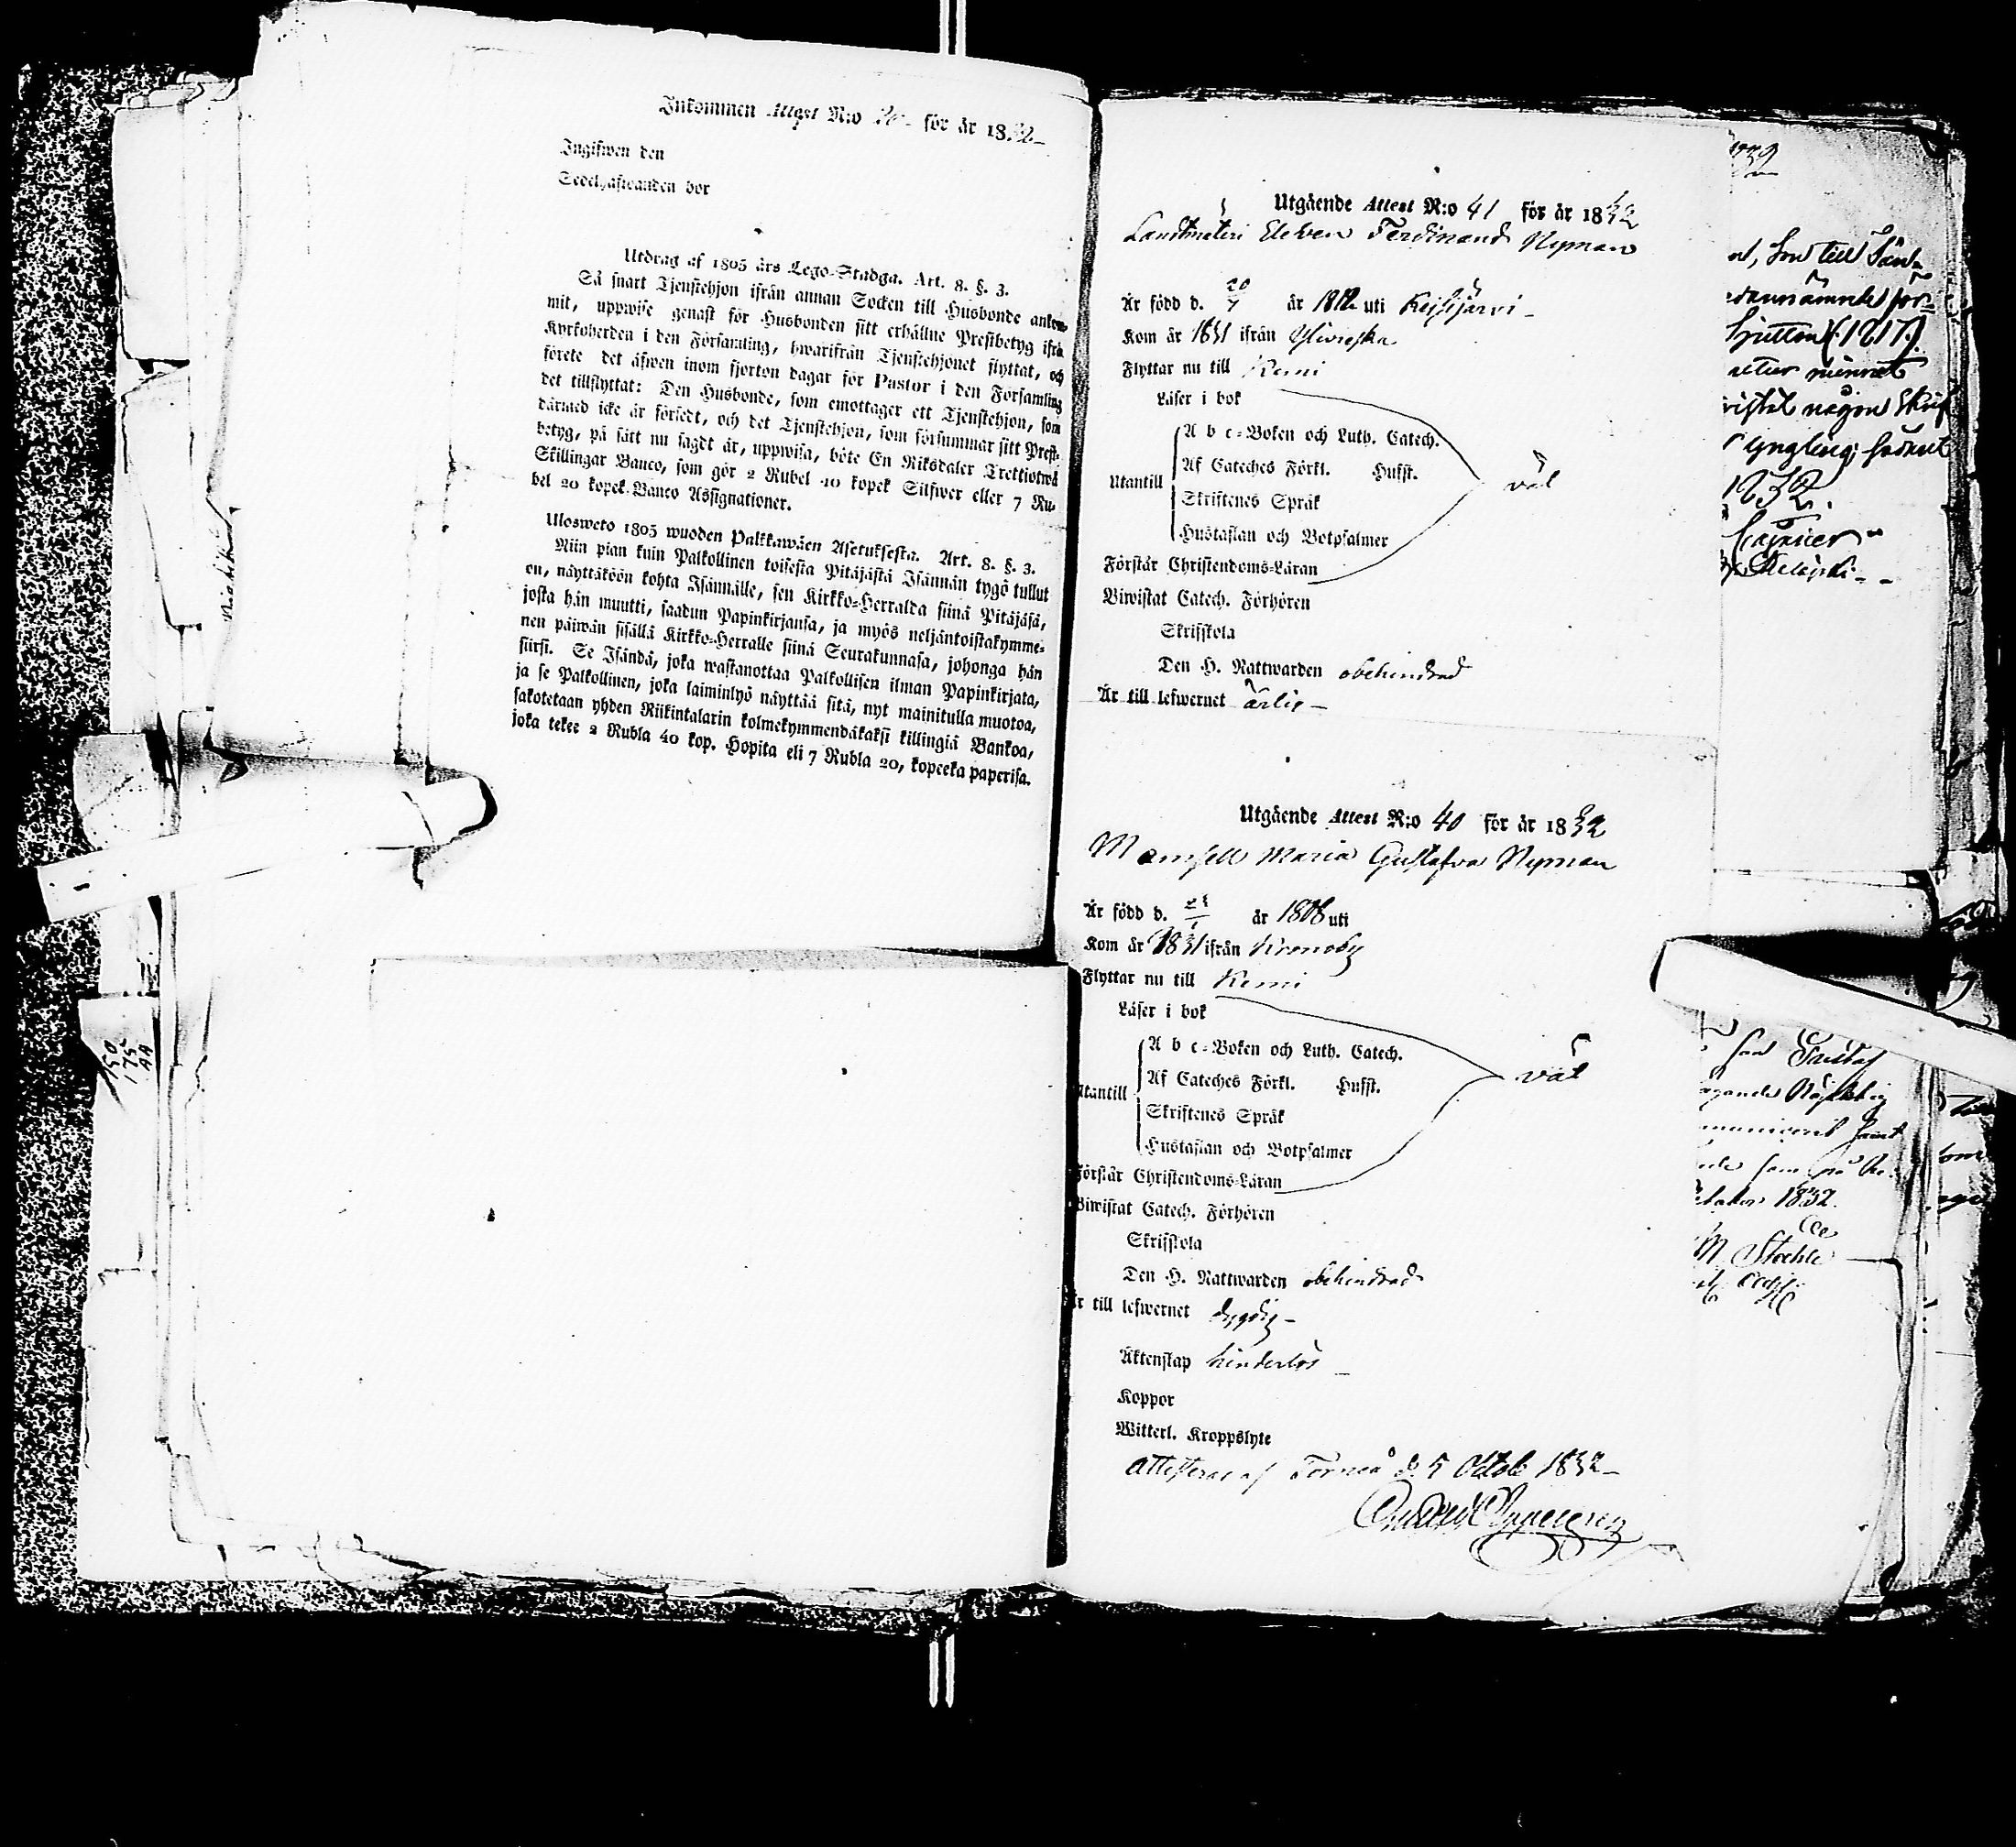 Inkommen Attest N:o för år 1832
Ingifwen den
Sedelhafwanden bor
Utdrag af 1805 års Lego-Stadga. Art. 8. §. 3.
Så snart Tjenstehjon ifrån annan Socken till Husbonde ankom-
mit, uppwise genast för Husbonden sitt erhållne Prestbetyg ifrån
Kyrkoherden i den Församling, hwarifrån Tjenstehjonet flyttat, och
förete det äfwen inom fjorton dagar för Pastor i den Församling
det tillflyttat: Den Husbonde, som emottager ett Tjenstehjon, som
därmed icke är försedt, och det Tjenstehjon, som försummar sitt Prest-
betyg, på sätt nu sagdt är, uppwisa, böte En Riksdaler Trettiotwå
Skillingar Banco, som gör 2 Rubel 40 kopek Silfwer eller 7 Ru-
bel 20 kopek Banco Assignationer.
Ulosweto 1805 wuoden Palkkawäen Asetuksesta. Art. 8. §. 3.
Niin pian kuin Palkollinen toisesta Pitäjästä Isännän tygö tullut
on, näyttäköön kohta Isännälle, sen Kirkko-Herralda siinä Pitäjäsä,
josta hän muutti, saadun Papinkirjansa, ja myös neljäntoistakymme-
nen päiwän sisällä Kirkko-Herralle siinä Seurakunnasa, johonga hän
siirsi. Se Isändä, joka wastanottaa Palkollisen ilman Papinkirjata,
ja se Palkollinen, joka laiminlyö näyttää sitä, nyt mainitulla muotoa,
sakotetaan yhden Riikintalarin kolmekymmendäkaksi killingiä Bankoa,
joka tekee 2 Rubla 40 kop. Hopita eli 7 Rubla 20, kopeeka paperisa.
150
175
AA
Utgående Attest N:o 41 för år 1832
Landtmäteri Eleven Ferdinand Nyman
Är född d. 20/7 år 1812 uti
Kom år 1831 ifrån Ylivieska
Flyttar nu till Kemi
Läser i bok
A b c-Boken och Luth. Catech.
Af Cateches Förkl. Hufst.
Utantill väl
Skriftenes Språk
Hustaflan och Botpsalmer
Förstår Christendoms-Läran
Biwistat Catech. Förhören
Skriftskola
Den H. Nattwarden obehindrad
Är till lefwernet ärlig
Utgående Attest N:o 40 för år 1832
Mamsell Maria Gustafva Nyman
Är född d. år 1808 uti
Kom år 1831 ifrån Kronoby
Flyttar nu till Kemi
Läser i bok
A b c-Boken och Luth. Catech.
Af Cateches Förkl. Hufst.
Utantill väl
Skriftenes Språk
Hustaflan och Botpsalmer
Förstår Christendoms-Läran
Biwistat Catech. Förhören
Skriftskola
Den H. Nattwarden obehindrad
Är till lefwernet dygdig
Äktenskap hinderlös
Koppor
Witterl. Kroppslyte
Attesteras af Torneå d. 5 Octob 1832
son till
(1817)
någon Skrif
yngling;
1832.
son Gustaf
som på
1832.
M Stoehle